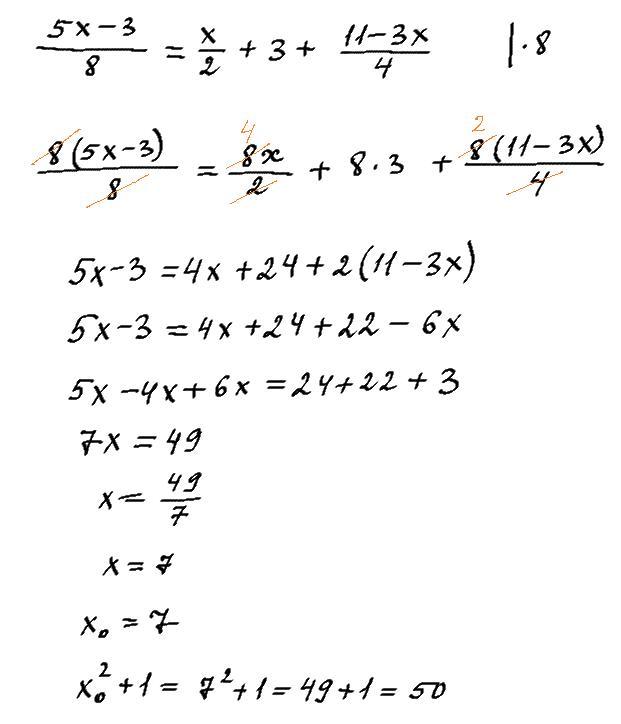 (5x-3)/8 = x/2 + 3 + (11-3x)/4 |·8
8(5x-3)/8 = 8x/2 + 8·3 + 8(11-3x)/4 4 2
5x-3 = 4x+24+2(11-3x)
5x-3 = 4x+24+22-6x
5x-4x+6x = 24+22+3
7x = 49
x = 49/7
x = 7
x₀ = 7
x₀²+1 = 7²+1 = 49+1 = 50